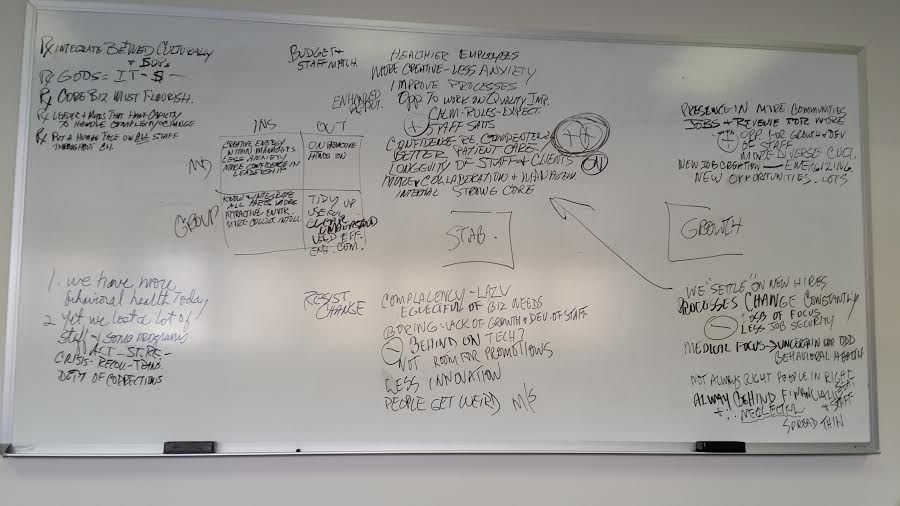 Rx INTEGRATE BETWEEN CULTURALLY
& SOP's
Rx GODS = IT - $ -
Rx CORE BIZ MUST FLOURISH.
Rx LEADER & MGRS THAT HAVE CAPACITY
TO HANDLE COMPLEXITY/CHANGE
Rx PUT A HUMAN FACE ON ALL STAFF
THROUGHOUT
BUDGET &
STAFF MATCH.
ENHANCED
INS OUT
IND
CREATIVE ENERGY
WITHIN MANAGERS
LESS ANXIETY
MORE CONFIDENCE IN
LEADERSHIP
HANDS ON
GROUP
KNOW & INTEGRATE
ALL PARTS
ATTRACTIVE ENVIR.
MORE COLLECT. INTELL.
TIDY UP
UNDERSTOOD
NEED EFF.
HEALTHIER EMPLOYEES
MORE CREATIVE - LESS ANXIETY
IMPROVE PROCESSES
OPP TO WORK ON QUALITY IMP.
CALM - RULES - EXPECT.
+ STAFF SATIS
CONFIDENCE RE COMPETENCIES
BETTER PATIENT CARE
LONGEVITY OF STAFF & CLIENTS
MORE COLLABORATION &
INTERNAL STRONG CORE
++
ON
STAB.
PRESENCE IN MORE COMMUNITIES
JOBS & REVENUE FOR MORE
+ OPP. FOR GROWTH & DEV
OF STAFF
MORE DIVERSE CULT.
NEW JOB CREATION — ENERGIZING
NEW OPPORTUNITIES - LOTS
GROWTH
1. we have more
behavioral health today
2 yet we lost a lot of
staff & some programs
ACT - ST. RE -
CRISIS - RECOV - TRANS.
DEPT OF CORRECTIONS
RESIST
CHANGE
COMPLACENCY - LAZY
OF BIZ NEEDS
BORING = LACK OF GROWTH & DEV. OF STAFF
- BEHIND ON TECH?
NOT ROOM FOR PROMOTIONS
LESS INNOVATION
PEOPLE GET WEIRD M/S
WE "SETTLE" ON NEW HIRES
PROCESSES CHANGE CONSTANTLY
- LOSS OF FOCUS
LESS JOB SECURITY
MEDICAL FOCUS → UNCERTAIN FOR OLD
BEHAVIORAL HEALTH
NOT ALWAYS RIGHT PEOPLE IN RIGHT
SEAT
ALWAYS BEHIND FINANCIALLY
& STAFF
NEGLECTED
SPREAD THIN